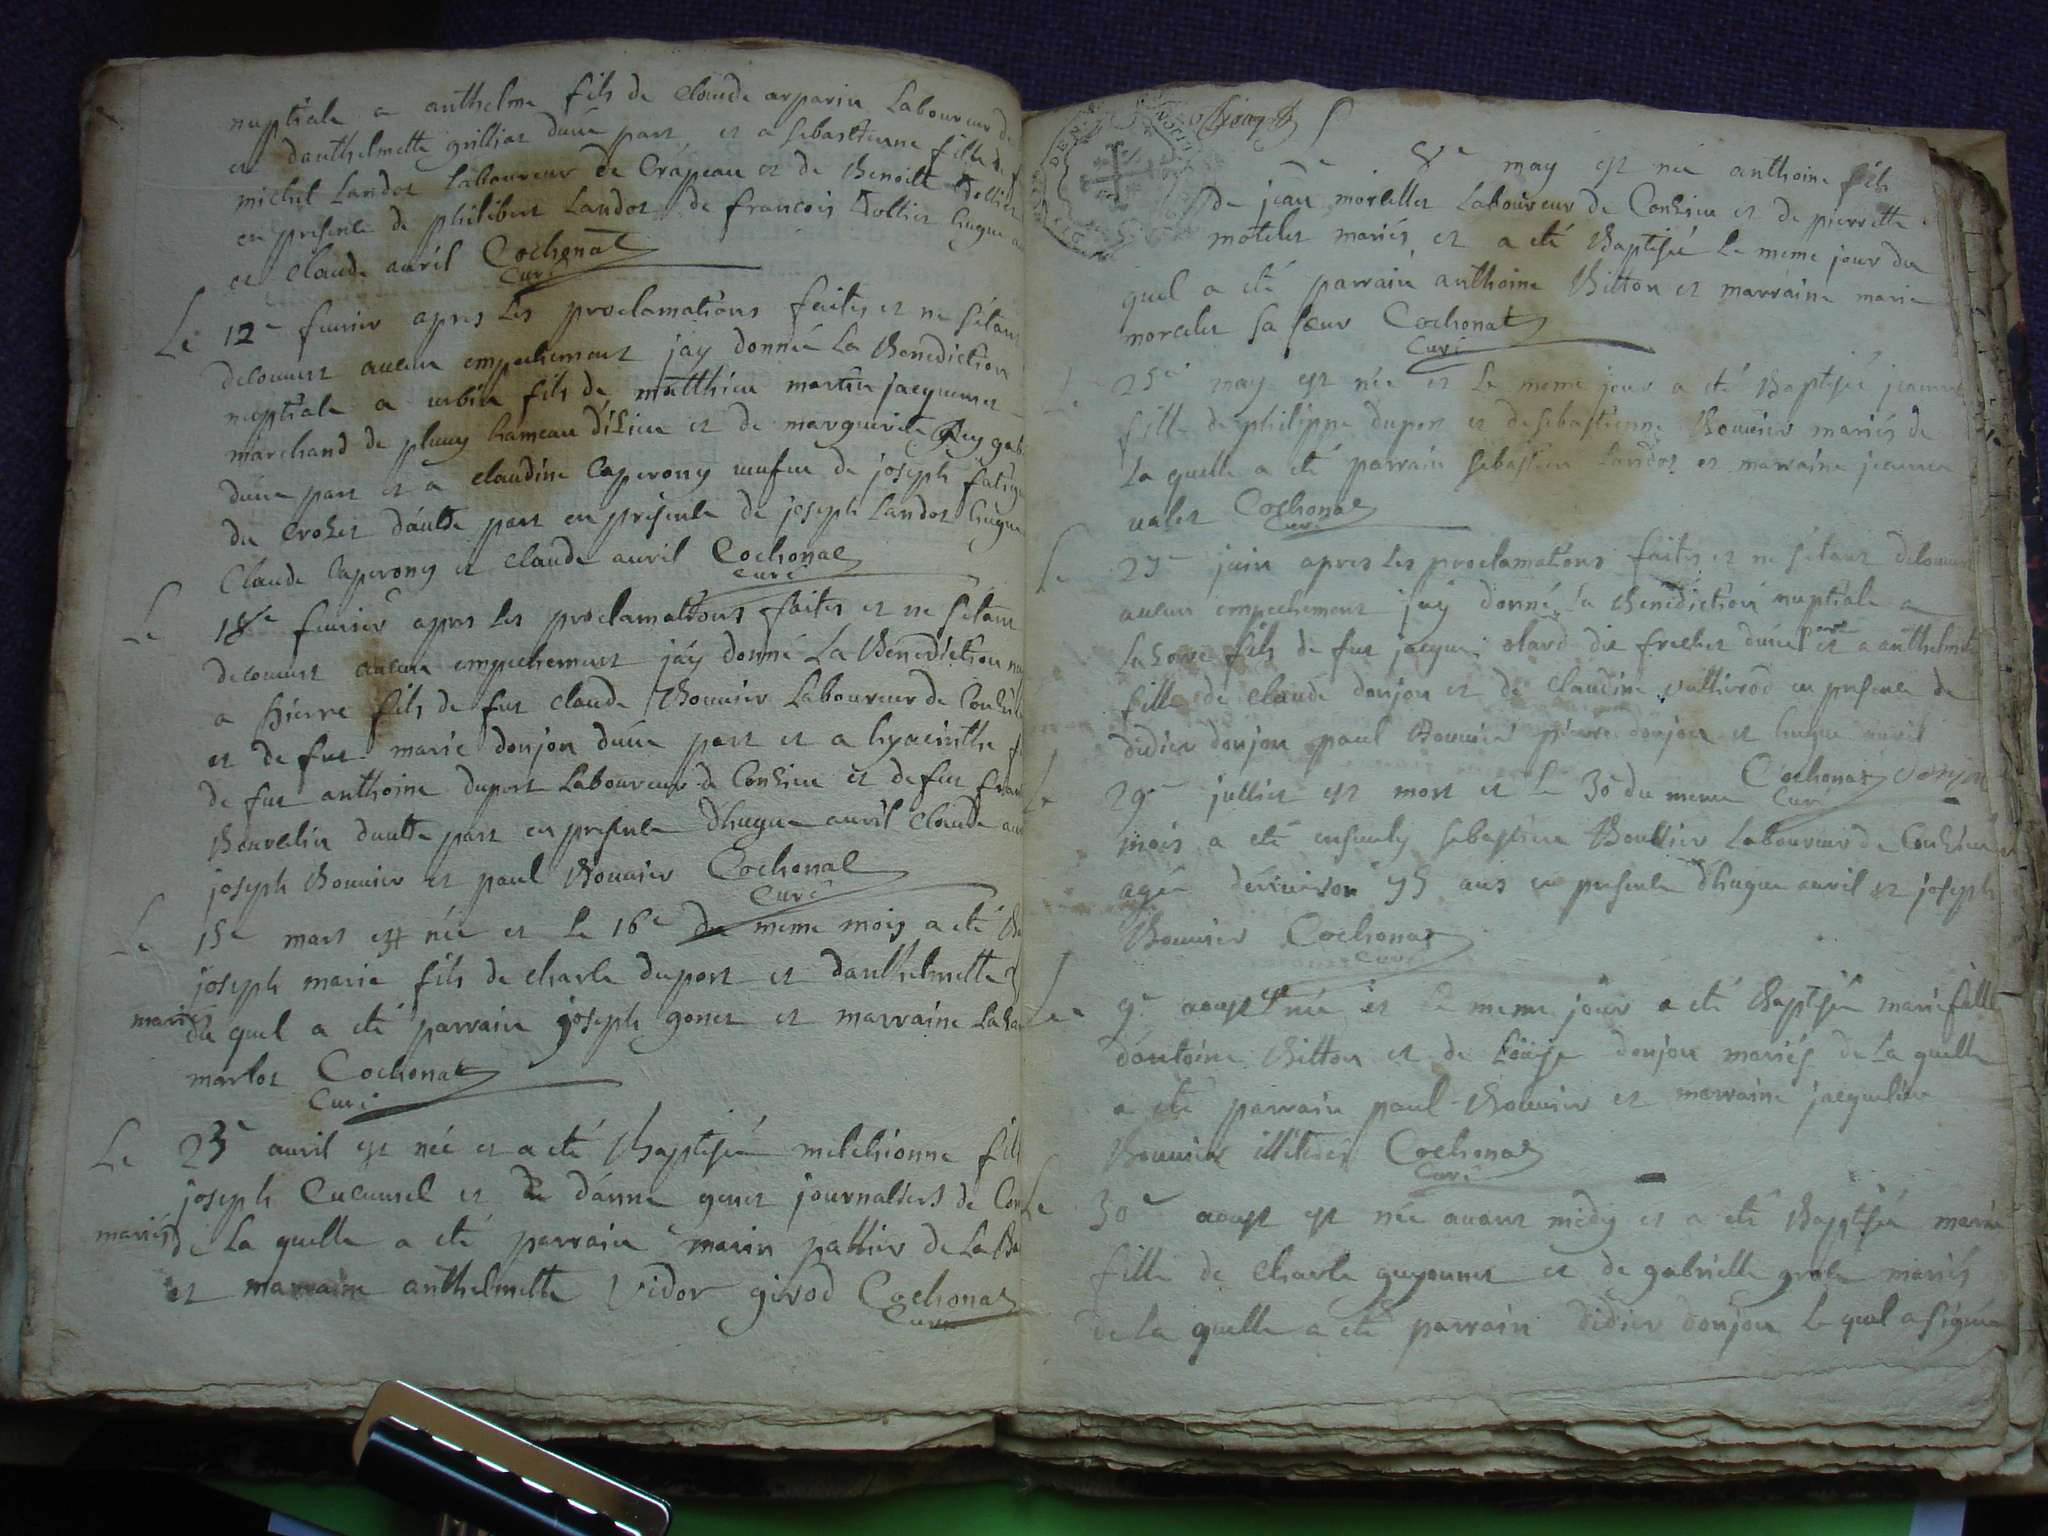 nuptiale a anthelme fils de claude arparin Laboureur de
et danthelmette grilliat dune part et a sebastienne fille de
michel Landot Laboureur de Crapeau et de Benoitte
en presence de philibert Landot de francois hugue
et claude avril Cochonat
Curé
Le 12e fevrier apres les proclamations faites et ne sétant
decouvert aucun empechement jay donné La Benediction
nuptiale a urbin fils de matthieu martin jacquemet
marchand de plumy hameau diZieu et de marguerite
dune part et a claudine Caperony veufve de joseph
du Crozet dautre part en presence de joseph Landot hugue
Claude Caperony et claude avril Cochonat
curé
Le 18e fevrier apres les proclamations faites et ne sétant
decouvert aucun empechement jay donné La Benediction
a pierre fils de fut claude Bouvier Laboureur de
et de fut marie donjon dune part et a hyacinthe
de fut anthoine duport Laboureur de Conzieu et de fut
Bourdin dautre part en presence dhugue avril Claude
joseph Bouvier et paul Bouvier Cochonat
Curé
Le 15e mars est née et le 16e du meme mois a eté
joseph marie fils de charle duport et danthelmette
mariés
du quel a eté parrain joseph gonet et marraine
marlot Cochonat
Curé
Le 23e avril est née et a eté Baptisée melchionne
joseph Cucuruel et de danne genet journaliers de
mariés
de La quelle a eté parrain marin pallier de La
et marraine anthelmette Vidor girod Cochonat
Curé
8e may est née anthoine fils
de jean morellet Laboureur de Conzieu et de pierrette
motelet mariés et a eté Baptisé Le meme jour du
quel a eté parrain anthoine Bitton et marraine marie
morelet sa sœur Cochonat
Curé
Le 25e may est née et Le meme jour a eté Baptisée jeanne
fille de philippe duport et de sebastienne Bouvier mariés de
La quelle a eté parrain sebastien Landot et marraine jeanne
valet Cochonat
Curé
Le 23e juin apres Les proclamations faites et ne sétant decouvert
aucun empechement jay donné La Benediction nuptiale a
fils de fut jacque olard dit frechet dune part et a anthelmette
fille de Claude donjon et de Claudine vullierod en presence de
didier donjon paul Bouvier pierre donjon et hugue avril
Cochonat donjon
Curé
Le 29e juillet est mort et le 30 du meme
mois a eté ensevely sebastien Bouvier Laboureur de Conzieu
agée denviron 75 ans en presence dhugue avril et joseph
Bouvier Cochonat
Curé
Le 9e aoust est née et Le meme jour a eté Baptisée marie fille
dantoine Bitton et de Loüise donjon mariés de La quelle
a eté parrain paul Bouvier et marraine jacqueline
Bouvier illiterés Cochonat
Curé
Le 30e aoust est née avant midy et a eté Baptisée marie
fille de charle guyonnet et de gabrielle grole mariés
de La quelle a eté parrain didier donjon Le quel a signé